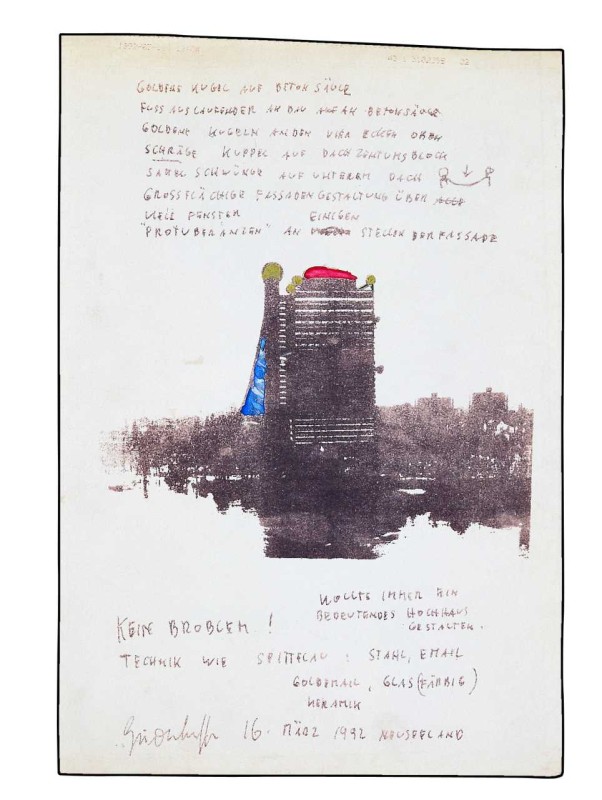 GOLDENE KUGEL AUF BETONSÄULE
FUSS AUSLAUFENDER ANBAU AN BETONSÄULE
GOLDENE KUGELN AN DEN VIER ECKEN OBEN
SCHRÄGE KUPPEL AUF DACHZENTUMSBLOCK
SCHWÜNGE AUF UNTEREM DACH
GROSSFLÄCHIGE FASSADENGESTALTUNG ÜBER ALLE
VIELE FENSTER EINIGEN
"PROTUBERANZEN" AN STELLEN DER FASSADE
WOLLTE IMMER EIN
BEDEUTENDES HOCHHAUS
GESTALTEN.
KEIN BROBLEM!
TECHNIK WIE SPITTELAU: STAHL, EMAIL
GOLDEMAIL, GLAS (FÄRBIG)
KERAMIK
16. MÄRZ 1992 NEUSEELAND